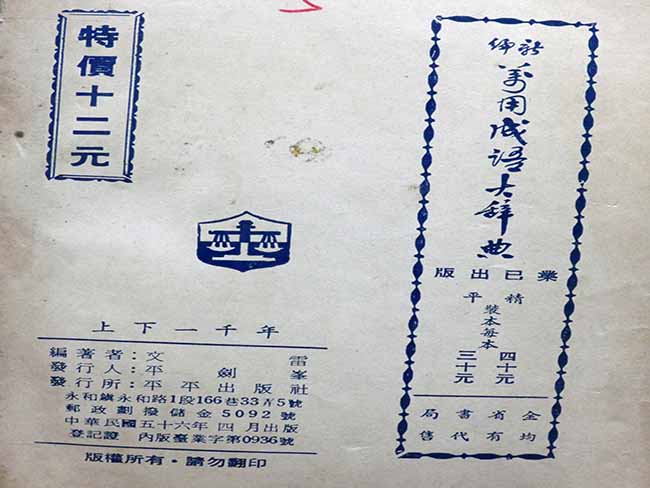 新編
萬用成語大辭典
業已出版
精平
裝本每本
四十元
三十元
全省書局
均有代售
特價十二元
上下一千年
編著者:文 雷
發行人:平 劍 峯
發行所:平平出版社
永和鎮永和路1段166巷33弄5號
郵政劃撥儲金5092號
中華民國五十六年四月出版
登記證 內版臺業字第0936號
版權所有・請勿翻印